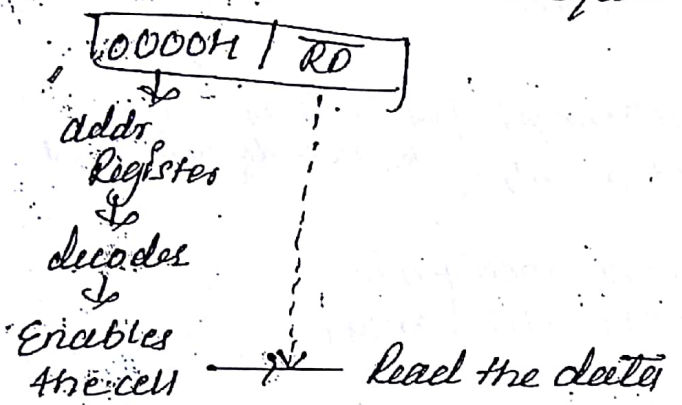 0000H | R̅D̅
addr
Register
decodes
Enables
the cell
Read the data